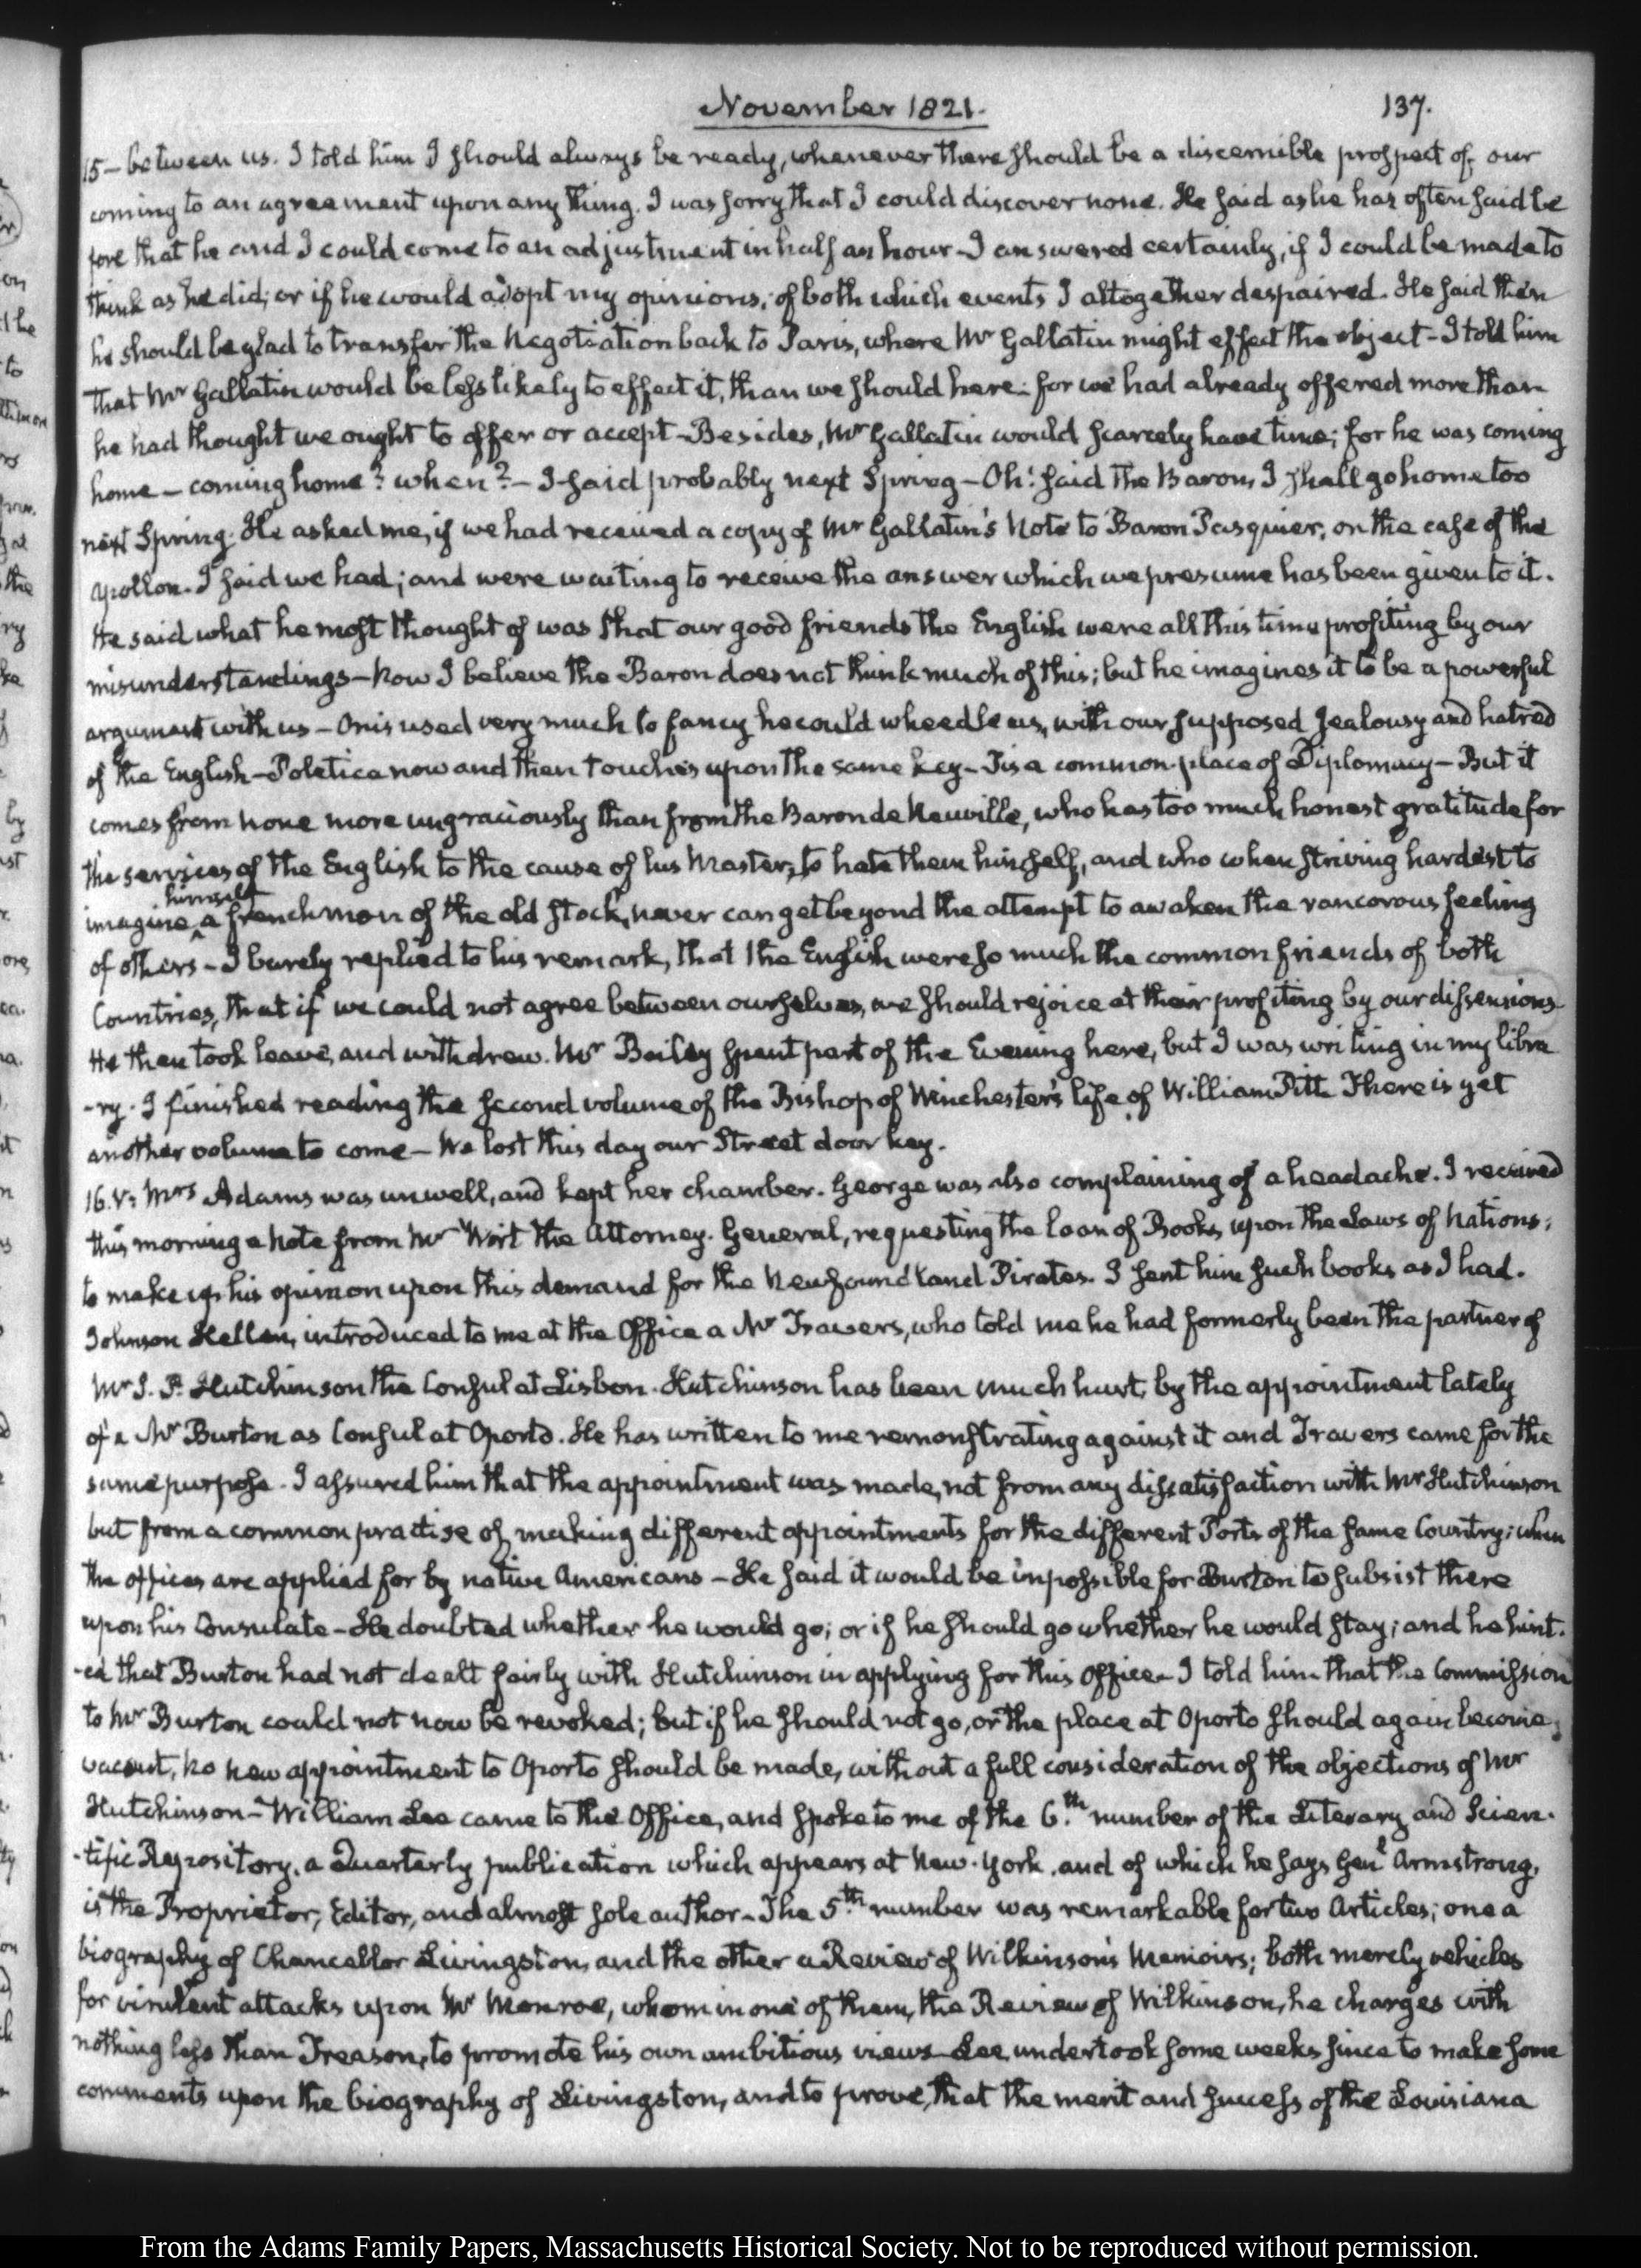 November 1821.
137.
15 — between us. I told him I should always be ready, whenever there should be a discernible prospect of our
coming to an agreement upon any thing. I was sorry that I could discover none. He said as he has often said be
fore that he and I could come to an adjustment in half an hour — I answered certainly, if I could be made to
think as he did; or if he would adopt my opinions; of both which events I altogether despaired. He said then
he should be glad to transfer the Negotiation back to Paris, where Mr Gallatin might effect the object — I told him
that Mr Gallatin would be less likely to effect it, than we should here. for we had already offered more than
he had thought we ought to offer or accept — Besides, Mr Gallatin would scarcely have time; for he was coming
home — coming home? when? — I said probably next Spring — Oh! said the Baron, I shall go home too
next Spring. He asked me, if we had received a copy of Mr Gallatin's Note to Baron Pasquier, on the case of the
Apollon. I said we had; and were waiting to receive the answer which we presume has been given to it.
He said what he most thought of was that our good friends the English were all this time profiting by our
misunderstandings — Now I believe the Baron does not think much of this; but he imagines it to be a powerful
argument with us — Onis used very much to fancy he could wheedle us, with our supposed jealousy and hatred
of the English — Poletica now and then touches upon the same key — Tis a common-place of Diplomacy — But it
comes from none more ungraciously than from the Baron de Neuville, who has too much honest gratitude for
the services of the English to the cause of his Master, to hate them himself, and who when striving hardest to
imagine himself a frenchman of the old stock, never can get beyond the attempt to awaken the rancorous feeling
of others — I barely replied to his remark, that the English were so much the common friends of both
Countries, that if we could not agree between ourselves, we should rejoice at their profiting by our dissensions.
He then took leave, and withdrew. Mr Bailey spent part of the Evening here, but I was writing in my libra
-ry. I finished reading the second volume of the Bishop of Winchester's life of William Pitt. There is yet
another volume to come — We lost this day our Street door key.
16. V: Mrs Adams was unwell, and kept her chamber. George was also complaining of a headache. I received
this morning a Note from Mr Wirt the Attorney-General, requesting the loan of Books, upon the Laws of Nations;
to make up his opinion upon this demand for the Newfoundland Pirates. I sent him such books as I had.
Johnson Hellen, introduced to me at the Office a Mr Travers, who told me he had formerly been the partner of
Mr I. P. Hutchinson the Consul at Lisbon. Hutchinson has been much hurt, by the appointment lately
of a Mr Burton as Consul at Oporto. He has written to me remonstrating against it and Travers came for the
same purpose. I assured him that the appointment was made, not from any dissatisfaction with Mr Hutchinson
but from a common practise of making different appointments for the different Ports of the same Country; when
the offices are applied for by native Americans — He said it would be impossible for Burton to subsist there
upon his Consulate — He doubted whether he would go; or if he should go whether he would stay; and he hint-
-ed that Burton had not dealt fairly with Hutchinson in applying for this Office — I told him that the Commission
to Mr Burton could not now be revoked; but if he should not go, or the place at Oporto should again become
vacant, no new appointment to Oporto should be made, without a full consideration of the objections of Mr
Hutchinson — William Lee came to the Office, and spoke to me of the 6.th number of the Literary and Scien-
-tific Repository, a Quarterly publication which appears at New-York, and of which he says Genl Armstrong,
is the Proprietor, Editor, and almost sole author — The 5.th number was remarkable for two Articles; one a
biography of Chancellor Livingston, and the other a Review of Wilkinson's Memoirs; both merely vehicles
for virulent attacks upon Mr Monroe, whom in one of them, the Review of Wilkinson, he charges with
nothing less than Treason, to promote his own ambitious views — Lee undertook some weeks since to make some
comments upon the biography of Livingston, and to prove, that the merit and success of the Louisiana
From the Adams Family Papers, Massachusetts Historical Society. Not to be reproduced without permission.